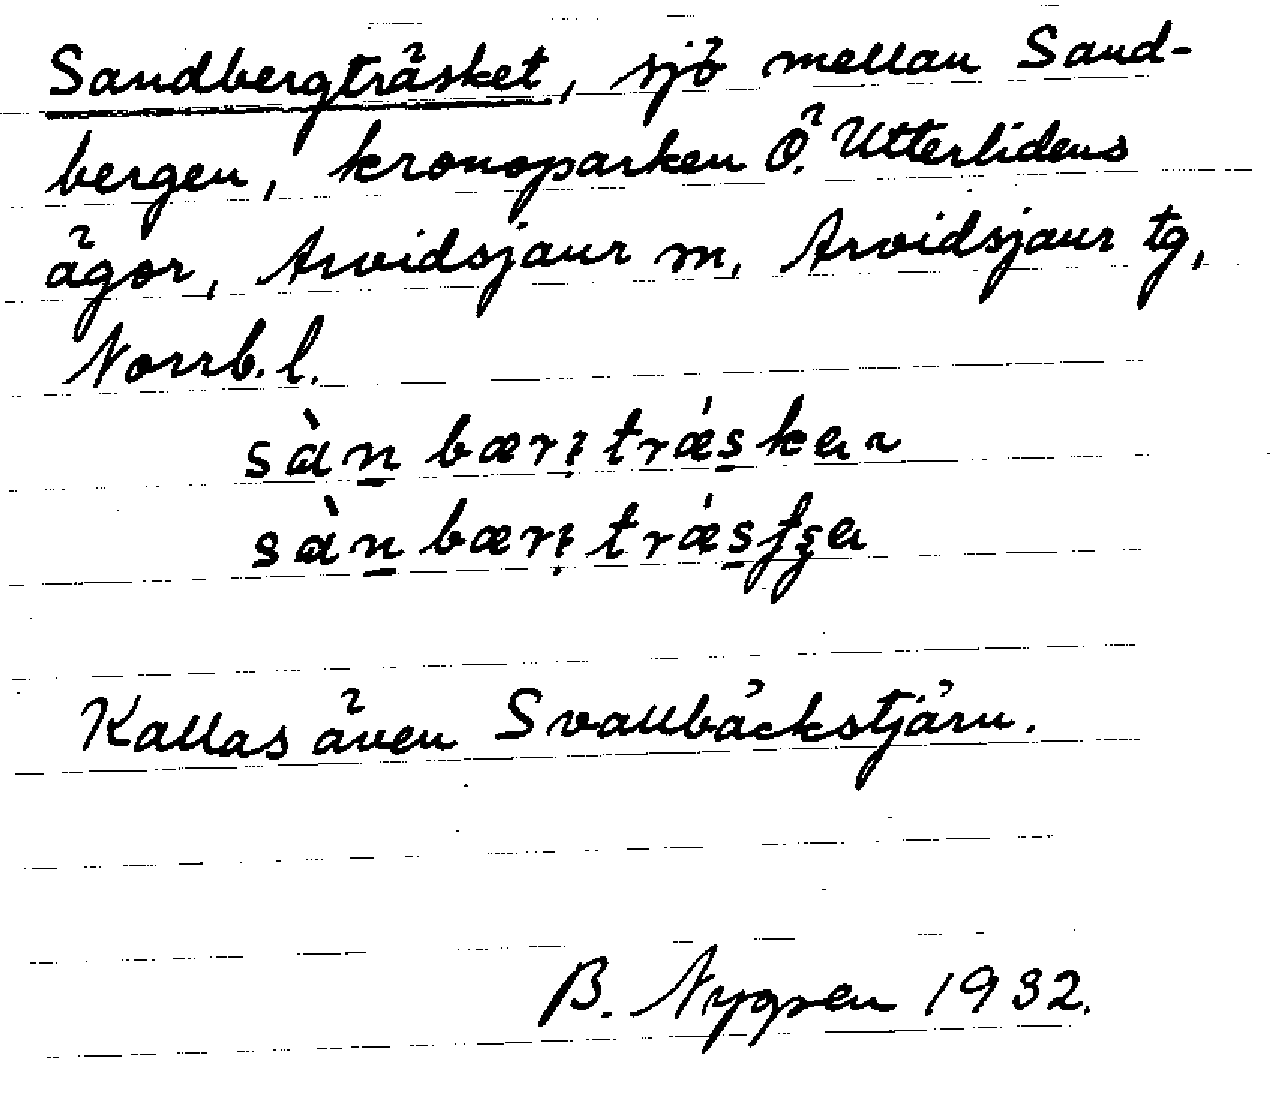 Sandbergträsket, sjö mellan Sand-
bergen, kronoparken Ö. Utterlidens
ägor, Arvidsjaur m, Arvidsjaur tg,
Norrb. l.
sàn bær; træ´sker
sàn bær; træ´sʃʒer
Kallas även Svallbäckstjärn.
B. Nygren 1932.